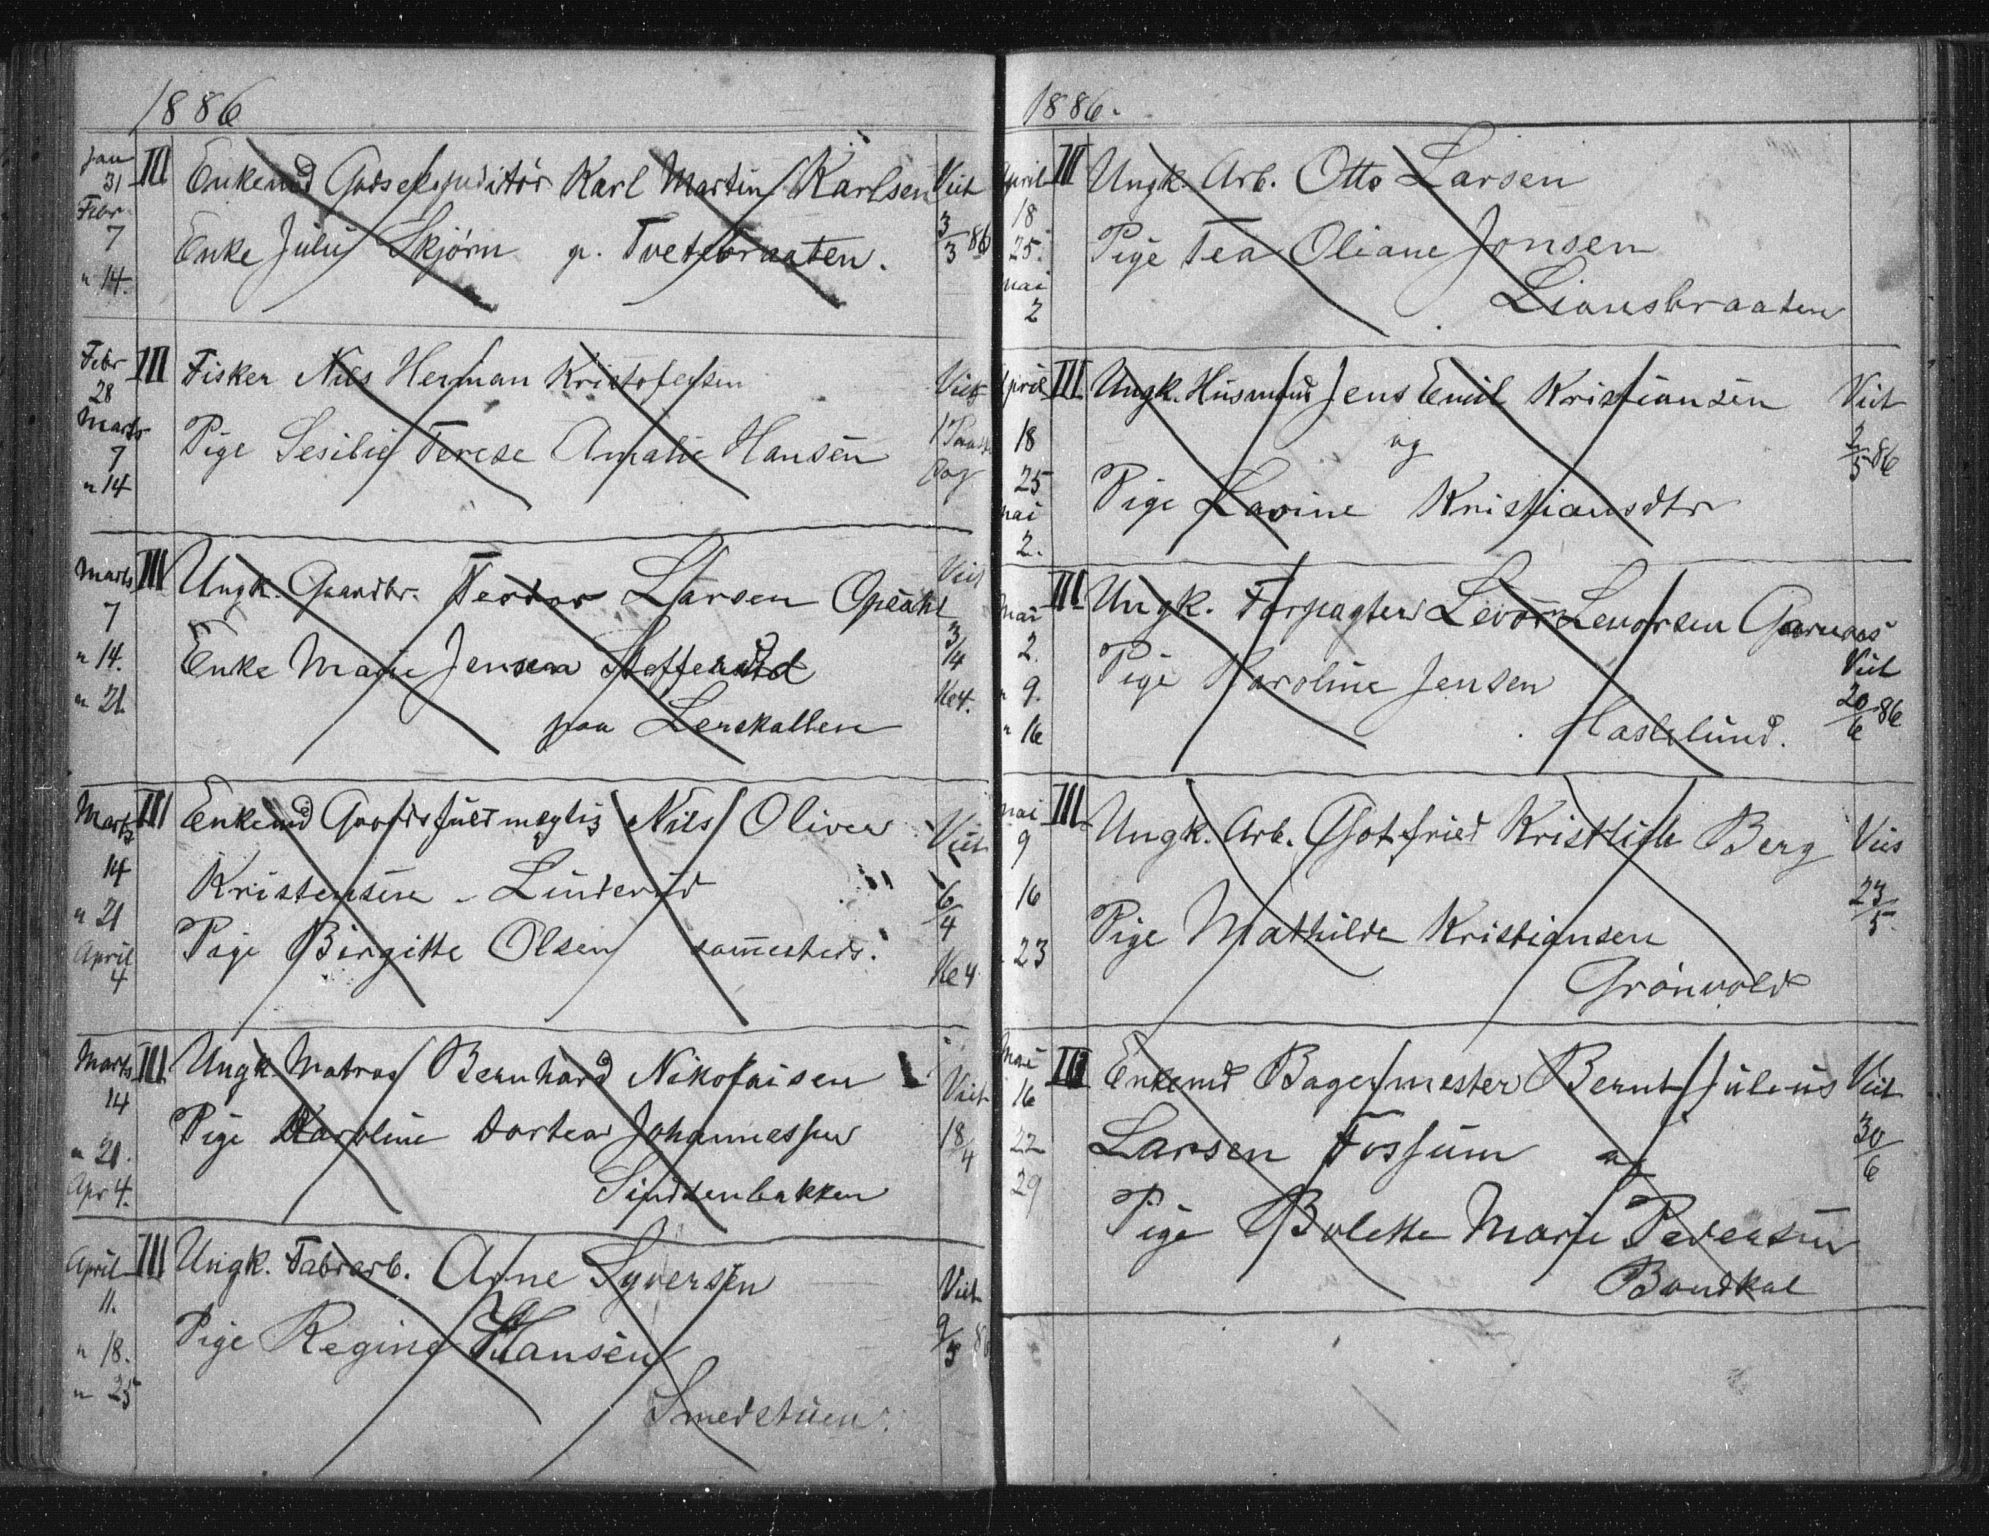 1886
Jan 31 III Enkemd Godsekspeditör Karl Martin Karlsen Viet
Febr. 7 Enke Juli Skjörn p. Tvetebraaten. 3/3 86
" 14.
Febr 28 III Fisker Nils Herman Kristofersen Viet
Marts 7 Pige Sesilie Terese Amalie Hansen 1 Paaske
" 14 Dag
Marts 7 III Ungk. Gaardbr. Teodor Larsen Opsahl Viet
" 14. Enke Marie Jensen 3/4
" 21. paa Lerskallen Kl 4.
Marts 14 III Enkemd Nils Oliver Viet
" 21 Kristensen - Linderud 6/4
April 4 Pige Birgitte Olsen sammesteds. Kl 4
Marts 14 III Ungk. Matros Bernhard Nikolaisen Viet
" 21. Pige Karoline Dortea Johannessen 18/4
Apr 4. Sindsenbakken
April 11. III Ungk. Fabrarb. Arne Syversen Viet
" 18. Pige Regine Hansen 9/5 86
" 25 Smedstuen.
1886.
April 18 III Ungk. Arb. Otto Larsen
25. Pige Tea Oliane Jonsen
Mai 2 Liansbraaten
April III Ungk. Husmand Jens Emil Kristiansen Viet
18 og 2/5 86
25 Pige Lavine Kristiansdtr
Mai 2.
Mai 2. III Ungk. Forpagter Levor Levorsen Garnaas
" 9. Pige Karoline Jensen Viet
" 16 Haslelund. 20/6 86
Mai 9 III Ungk. Arb. Gotfried Kristlieb Berg Vies
16 23/5.
23 Pige Mathilde Kristiansen
Grönvold
Mai 16 III Enkemd Bagermester Bernt Julius Viet
22 Larsen Fossum og 30/6
29 Pige Bolette Marie Pedersen
Bondkal